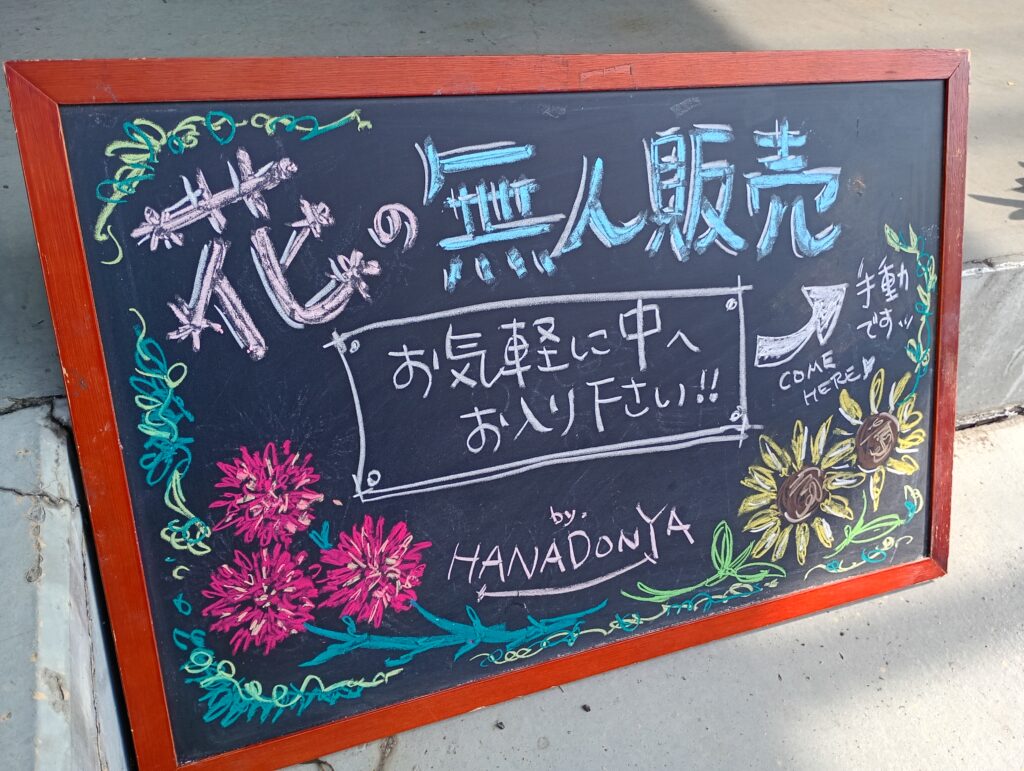 花の無人販売
お気軽に中へ
お入り下さい!!
手動
です
COME
HERE♥
by.
HANADONYA